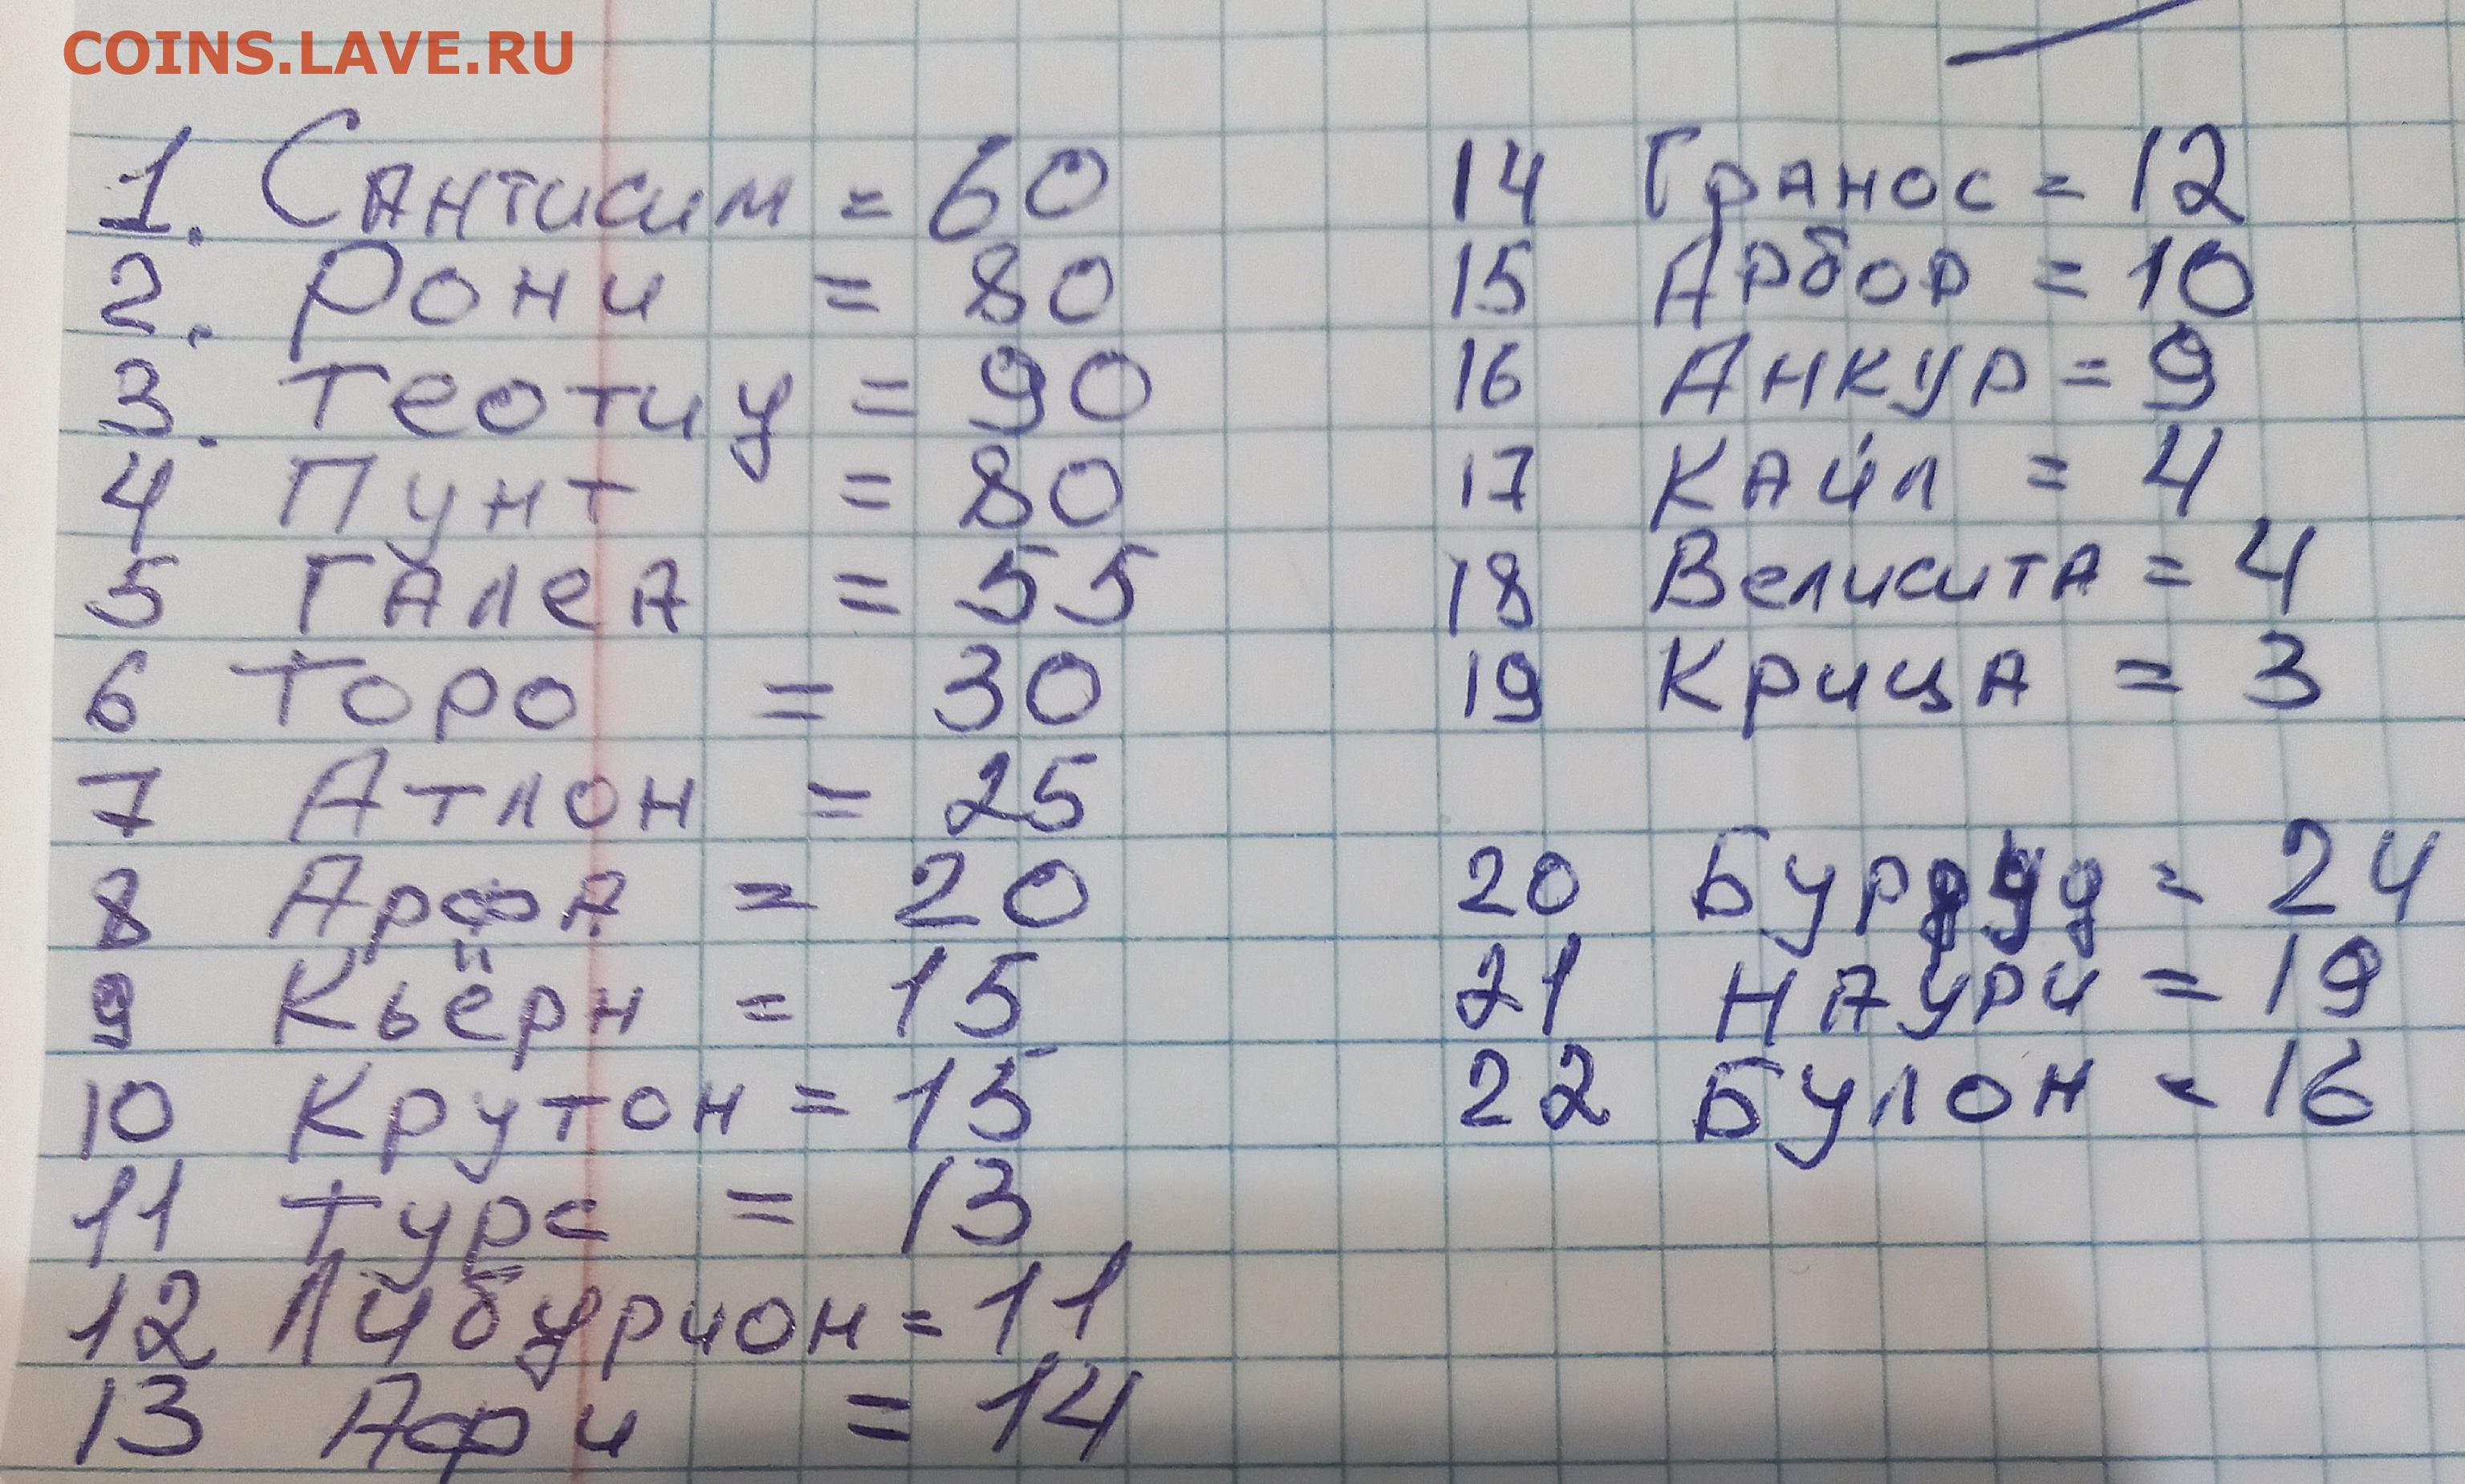 COINS.LAVE.RU
1. Сантисим = 60
2. Рони = 80
3. Теотиу = 90
4 Пунт = 80
5 Галеа = 55
6 Торо = 30
7 Атлон = 25
8 Арфа = 20
9 Кьёрн = 15
10 Крутон = 15
11 Турс = 13
12 Лйбурион = 11
13 Афри = 14
14 Гранос = 12
15 Арбор = 10
16 Анкур = 9
17 Кайл = 4
18 Велисита = 4
19 Крица = 3
20 = 24
21 Наури = 19
22 Булон = 16